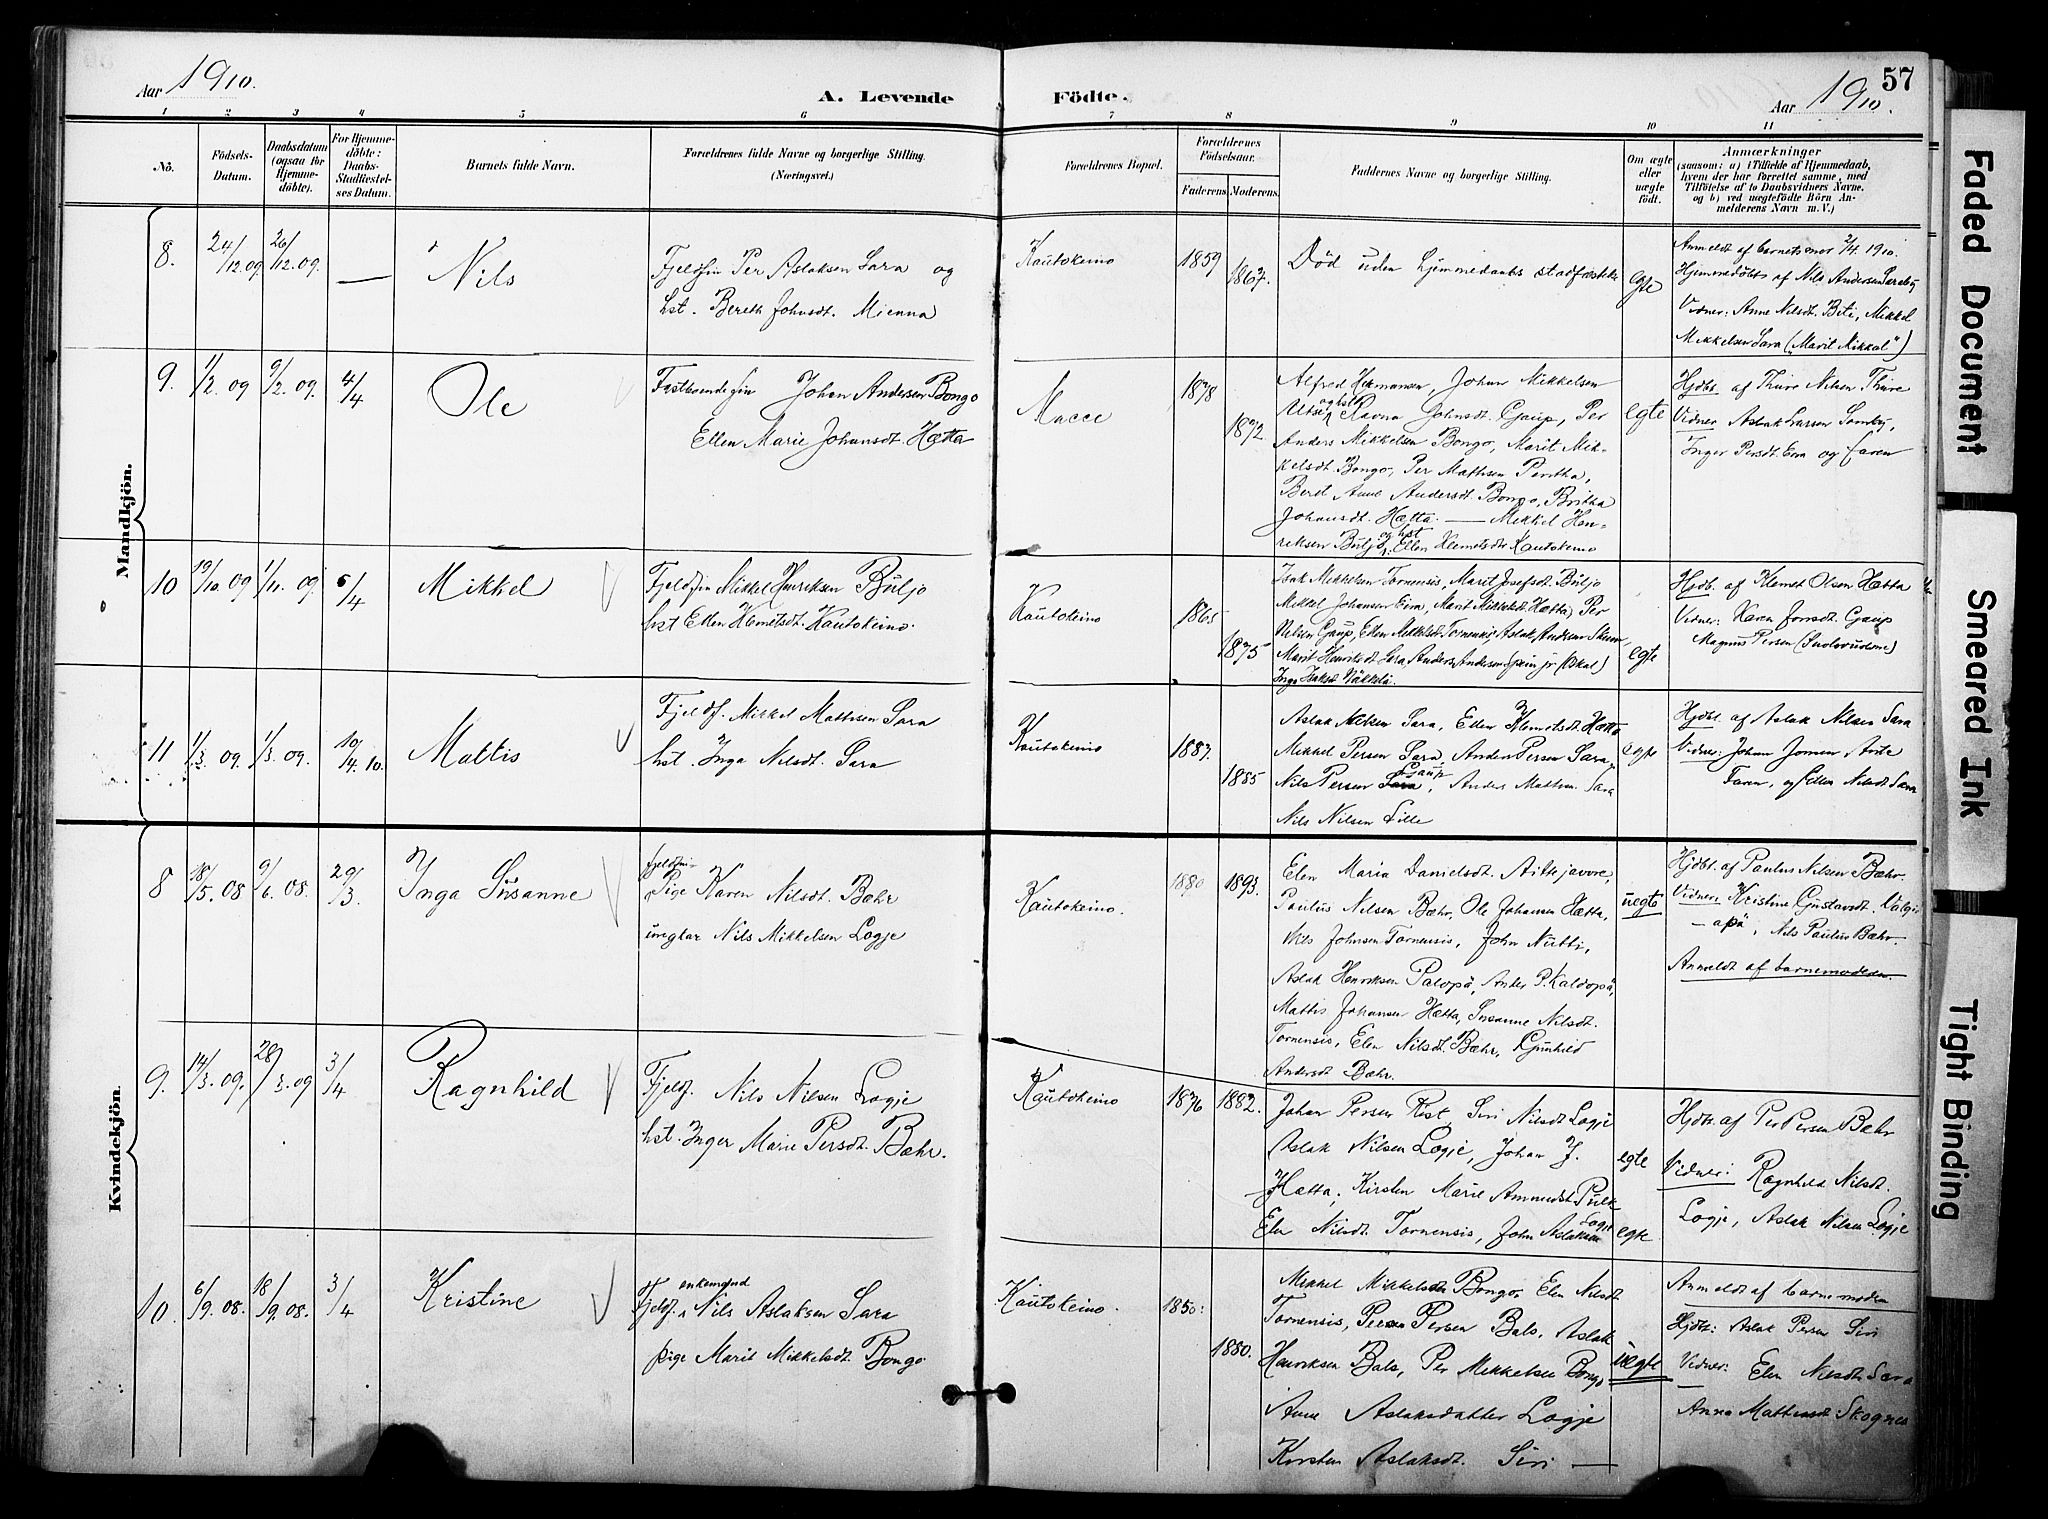 57
Aar 1910.
A. Levende Födte.
Aar 1910.
1 2 3 4 5 6 7 8 9 10 11
No.
Födsels-
Datum.
Daabsdatum
(ogsaa for
Hjemme-
döbte).
For Hjemme-
döbte:
Daabs-
Stadfæstel-
ses Datum.
Barnets fulde Navn.
Forældrenes fulde Navne og borgerlige Stilling.
(Næringsvei.)
Forældrenes Bopæl.
Forældrenes
Födselsaar.
Faderens. Moderens.
Faddernes Navne og borgerlige Stilling.
Om ægte
eller
uægte
födt.
Anmærkninger
(saasom: a) i Tilfælde af Hjemmedaab,
hvem der har forrettet samme, med
Tilföielse af to Daabsvidners Navne,
og b) ved uægtefödte Börn An-
melderens Navn m. V.)
Mandkjön.
8. 24/12.09 26/12.09. — Nils
Fjeldfin Per Aslaksen Sara og
hst. Bereth Johnsdt. Mienna
Kautokeino 1859 1867.
Død uden hjemmedaabs stadfæstelse
egte
Anmeldt af barnets mor 2/4. 1910.
Hjemmedøbt af Nils Andersen Saraby
Vidner: Anne Nilsdt. Biti, Mikkel
Mikkelsen Sara ("Marit Mikkal")
9. 1/2 09 9/2.09. 4/4 Ole
Fastboende fin Johan Andersen Bongo
Ellen Marie Johansdt. Hætta
Macce 1878 1872
Alfred Hermansen, Johan Mikkelsen
Utsi og hst Ravna Johnsdt. Gaup, Per
Anders Mikkelsen Bongo, Marit Mik-
kelsdt. Bongo, Per Mathisen Pentha,
Beret Anne Andersdt. Bongo, Britha
Johansdt. Hætta. — Mikkel Hen-
riksen Buljo og hst Ellen Klemetsdtr Kautokeino
egte
Hjdbt. af Thure Nilsen Thure
Vidner Aslak Larsen Somby,
Inger Persdt. Eira og faren
10 19/10.09 1/11.09 5/4 Mikkel
Fjeldfin Mikkel Henriksen Buljo
hst Ellen Klemetsdt. Kautokeino.
Kautokeino 1865 1875
Isak Mikkelsen Tornensis, Marit Josefsdt. Buljo
Mikkel Johansen Eira, Marit Mikkelsdt Hætta, Per
Nilsen Gaup, Ellen Mikkelsdt Tornensis, Aslak Andersen Skum,
Marit Henriksdt Sara, Anders Andersen Spein jr (Skal)
Inga Isaksdt Näkkelä.
egte
Hjdb. af Klemet Olsen Hætta
Vidner: Karen Jonsdt. Gaup
Magnus Persen (Suolovuobme)
11 1/3 09. 1/3 09. 10/4.10. Mattis
Fjeldf. Mikkel Mathisen Sara
hst. Inga Nilsdt. Sara
Kautokeino 1883. 1885
Aslak Nilsen Sara, Ellen Klemetsdt. Hætta
Mikkel Persen Sara, Anders Persen Sara,
Nils Persen Gaup, Anders Mathisen Sara
Nils Nilsen Lille
egte
Hjdbt. af Aslak Nilsen Sara
Vidner: Johan Jonsen
Faren, og Ellen Nilsdt. Sara
Kvindekjön.
8 18/5.08 9/6.08. 29/3. Inga Susanne
fjeldfin-
Pige Karen Nilsdt. Bæhr
ungkar Nils Mikkelsen Logje
Kautokeino. 1880 1893.
Elen Maria Danielsdt. Aitsjavvre,
Paulus Nilsen Bæhr, Ole Johansen Hætta,
Nils Johnsen Tornensis, John Nutti,
Aslak Henriksen Palopä, Anders P. Kaldopä,
Mattis Johansen Hætta, Susanne Nilsdt.
Tornensis, Elen Nilsdt. Bæhr, Gunhild
Andersdt Bæhr.
uegte
Hjdbt. af Paulus Nilsen Bæhr.
Vidner: Kristine Gustavsdt. Valgi-
— apä, Nils Paulus Bæhr.
Anmeldt af barnemoderen.
9. 14/3.09. 28/3.09 3/4 Ragnhild
Fjeldf. Nils Nilsen Logje
hst. Inger Marie Persdt. Bæhr.
Kautokeino 1876 1882.
Johan Persen Rist, Siri Nilsdt Logje
Aslak Nilsen Logje, Johan J.
Hætta, Kirsten Marie Ammundsdt. Pulk
Elen Nilsdt. Tornensis, John Aslaksen Logje
egte
egte.
Hjdbt. af Per Persen Bæhr
Vidner: Ragnhild Nilsdt.
Logje, Aslak Nilsen Logje
10. 6/9.08. 18/9.08. 3/4 Kristine
Fjeldf. enkemand Nils Aslaksen Sara
pige Marit Mikkelsdt. Bongo
Kautokeino. 1850. 1880.
Mikkel Mikkelsen Bongo, Elen Nilsdt
Tornensis, Per Persen Bals, Aslak
Henriksen Bals, Per Mikkelsen Bongo
Anne Aslaksdatter Logje
Kirsten Aslaksdt. Siri —
uegte
Anmeldt af barnemoden
Hjdbt: Aslak Persen Siri
Vidner: Elen Nilsdt. Sara
Anna Mathisdt. Skognes
Faded Document
Smeared Ink
Tight Binding